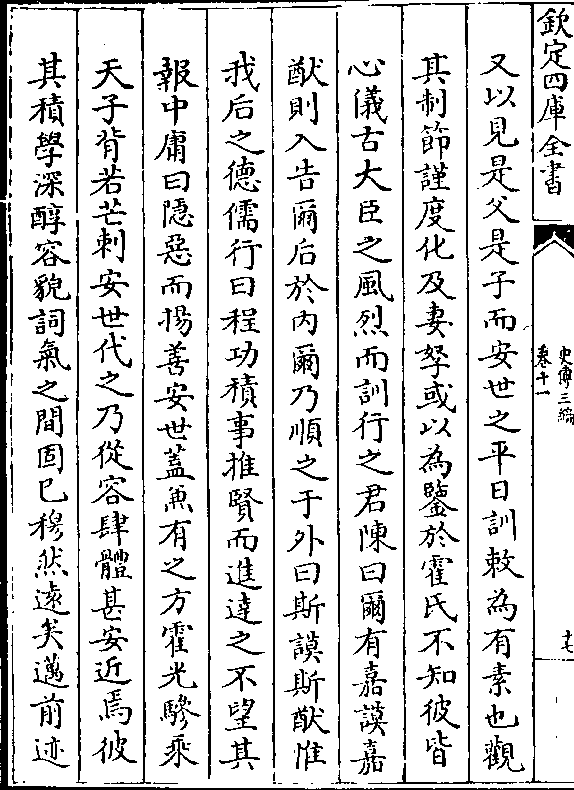 欽定四庫全書
史傳三編
卷十一
十七
又以見是父是子而安世之平日訓敕為有素也觀
其制節謹度化及妻孥或以為鑒於霍氏不知彼皆
心儀古大臣之風烈而訓行之君陳曰爾有嘉謨嘉
猷則入告爾后於內爾乃順之于外曰斯謨斯猷惟
我后之德儒行曰程功積事推賢而進達之不望其
報中庸曰隱惡而揚善安世蓋兼有之方霍光驂乘
天子背若芒刺安世代之乃從容肆體甚安近焉彼
其積學深醇容貌詞氣之間固已穆然遠矣邁前迹